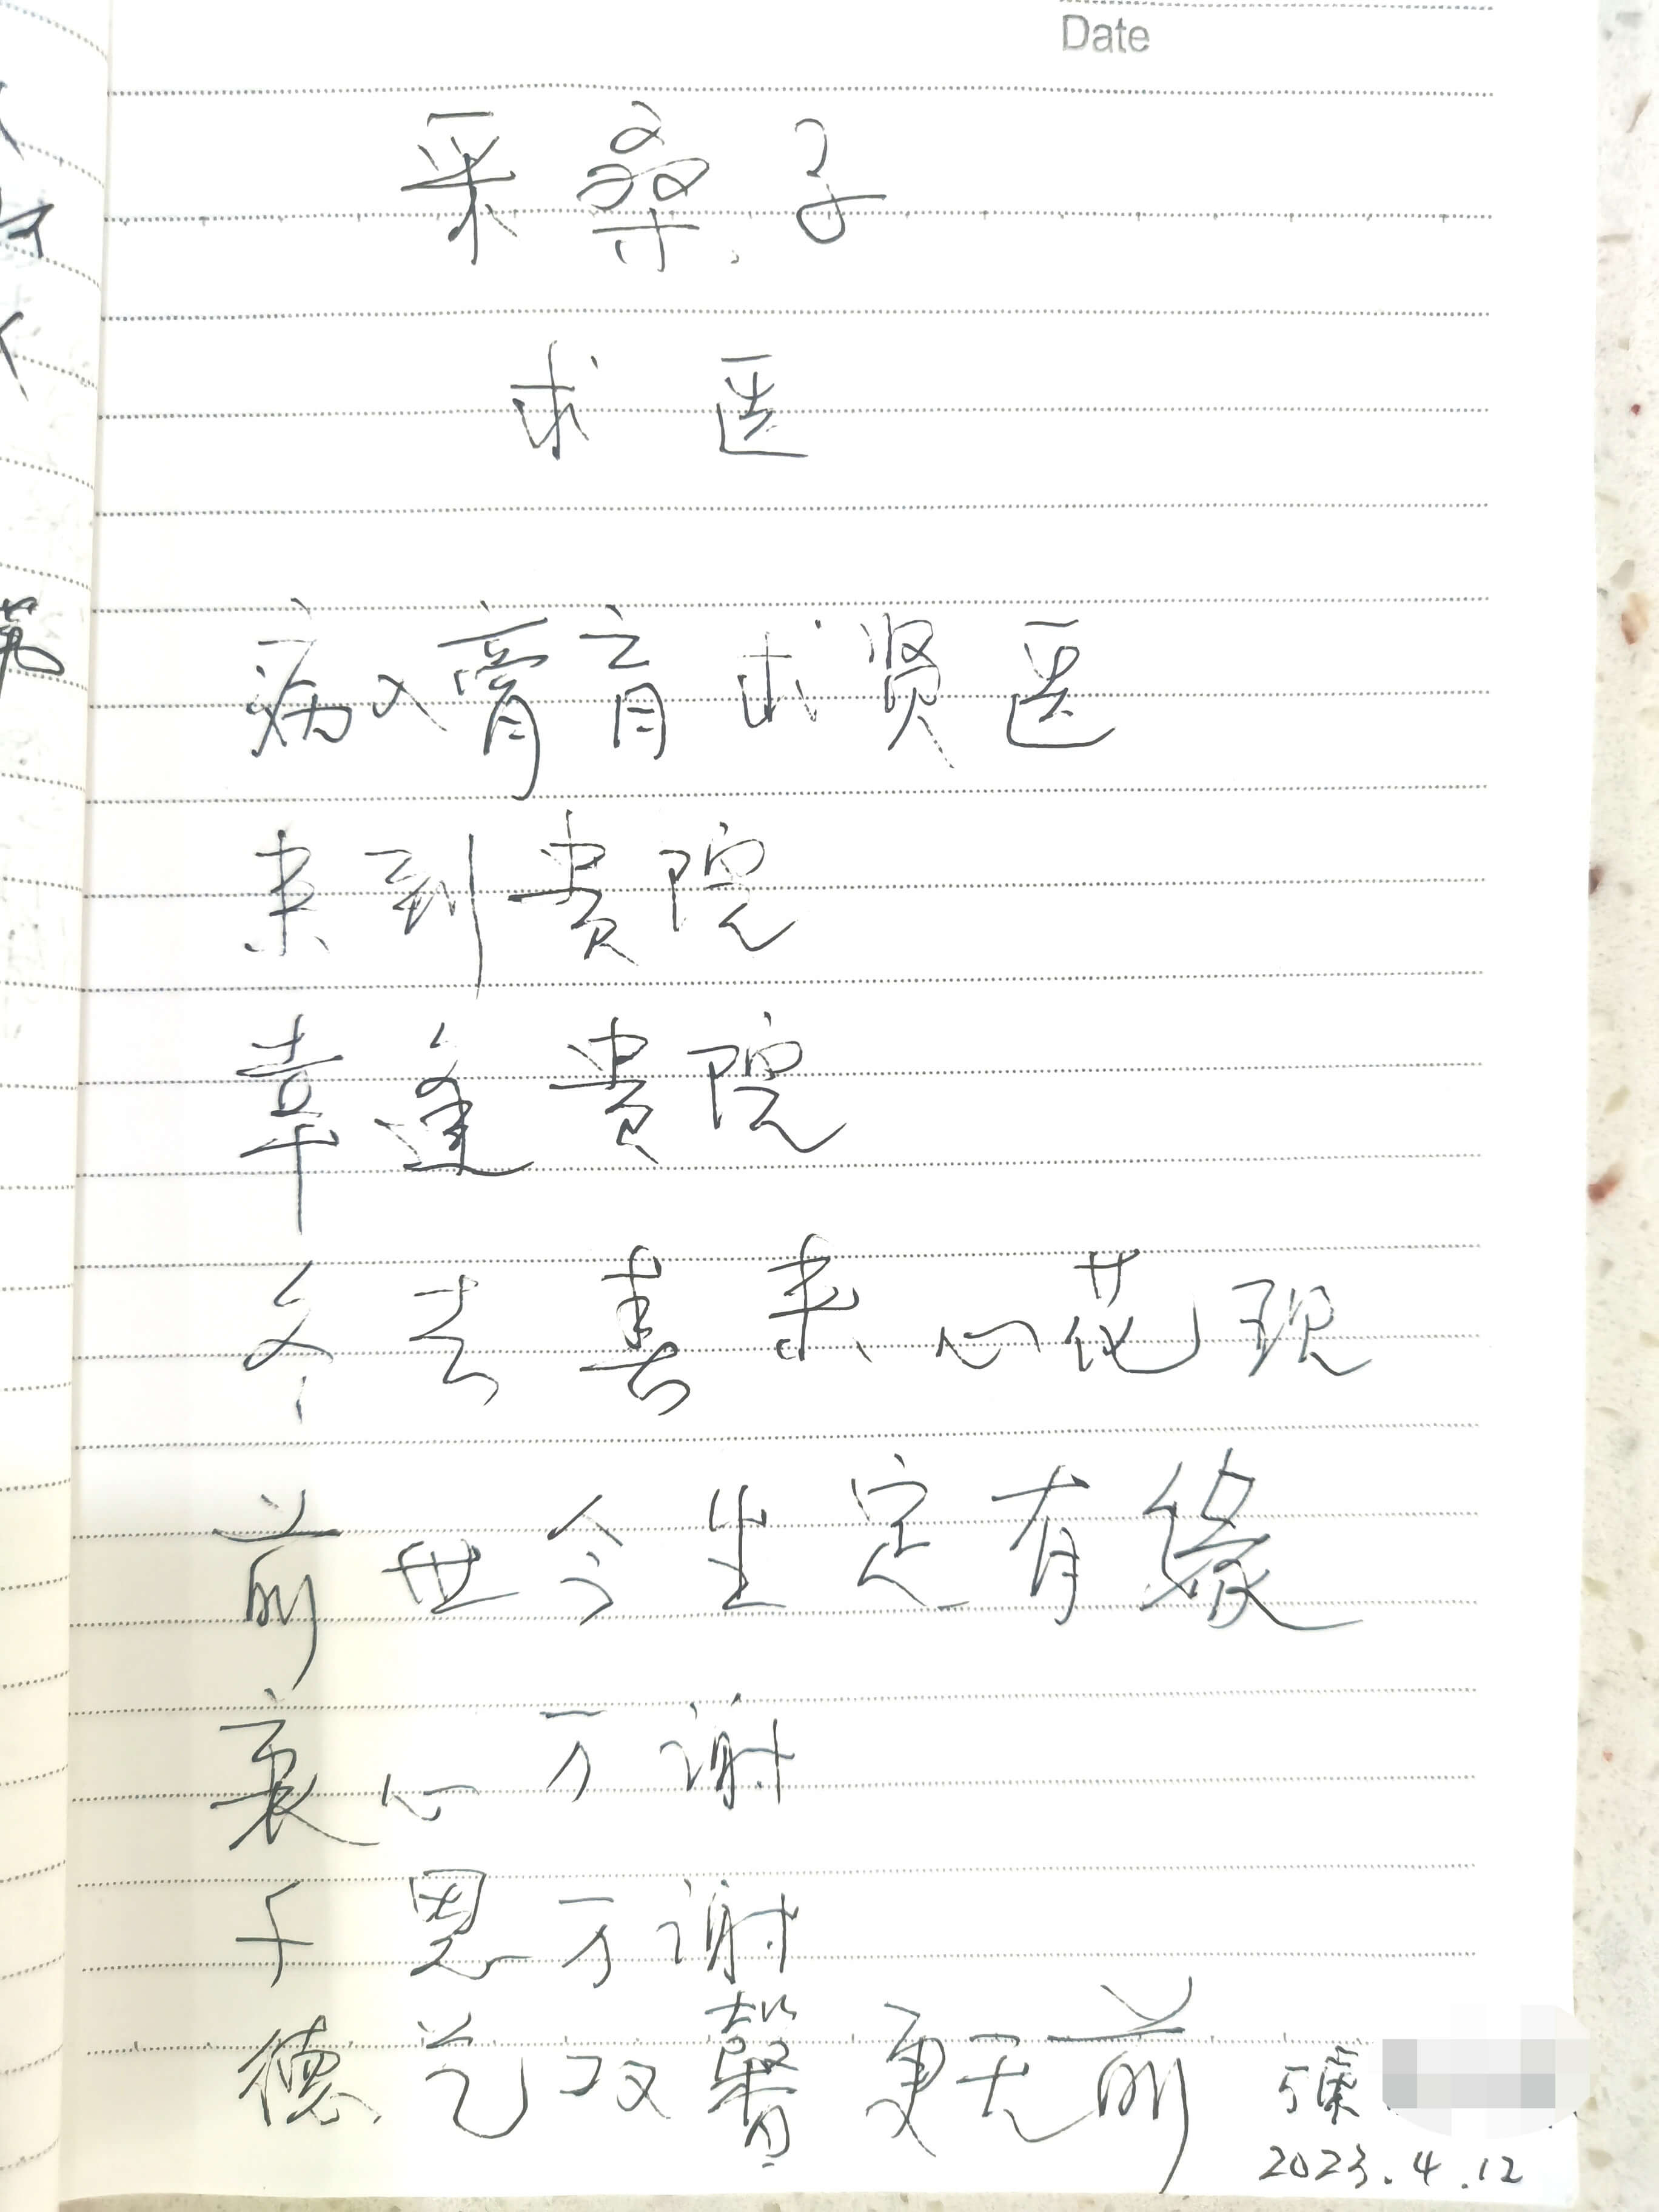 Date
采桑子
求医
病入膏肓求贤医
来到贵院
幸逢贵院
冬去春来心花现
前世今生定有缘
衷心万谢
千恩万谢
德艺双馨更无前
2023.4.12